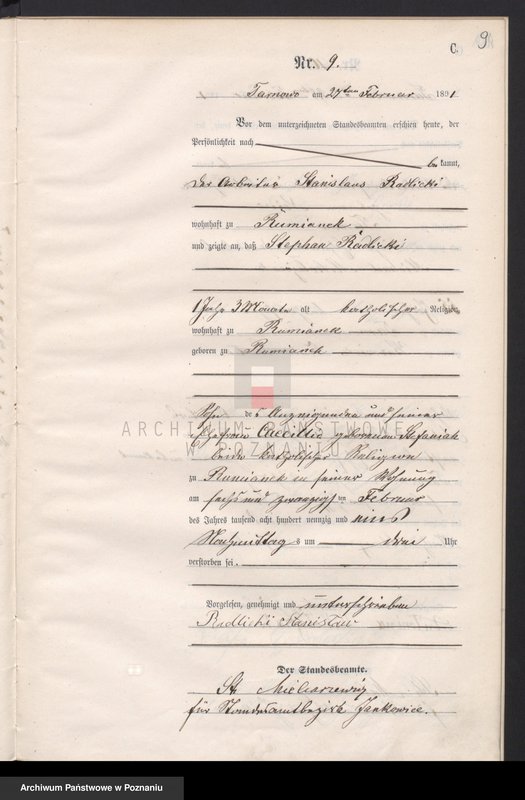 C.
9
Nr. 9.
Tarnowo am 27ten Februar 1891
Vor dem unterzeichneten Standesbeamten erschien heute, der
Persönlichkeit nach
bekannt,
der Arbeiter Stanislaus Radlicki
wohnhaft zu Rumianek
und zeigte an, daß Stephan Radlicki
1 Jahr 3 Monate alt katholischer Religion,
wohnhaft zu Rumianek
geboren zu Rumianek
Sohn des Anzeigenden und seiner
Ehefrau Caecilie geborenen Stefaniak
beide katholischer Religion
zu Rumianek in seiner Wohnung
am sechs und zwanzigsten Februar
des Jahres tausend acht hundert neunzig und eins
Nachmittags um drei Uhr
verstorben sei.
Vorgelesen, genehmigt und unterschrieben
Radlicki Stanisław
Der Standesbeamte.
St
für Standesamtbezirk Jankowice.
ARCHIWUM PAŃSTWOWE
W POZNANIU
Archiwum Państwowe w Poznaniu